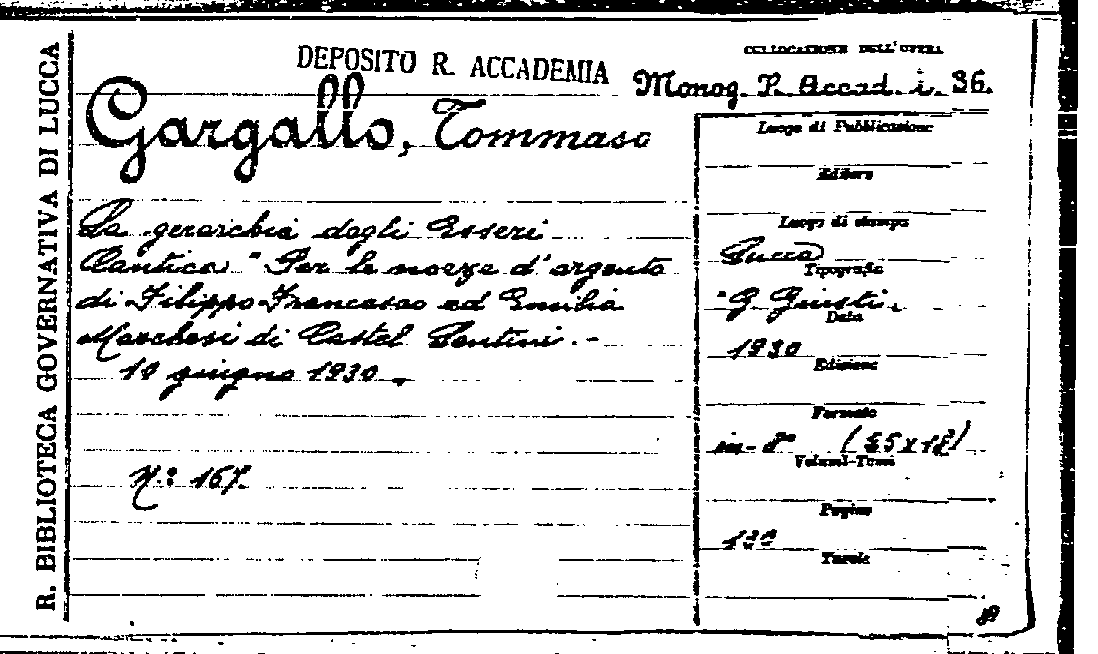 R. BIBLIOTECA GOVERNATIVA DI LUCCA
DEPOSITO R. ACCADEMIA
COLLOCAZIONE DELL'OPERA
Monog. P. Accad. i. 36.
Gargallo, Tommaso
La gerarchia degli Esseri
Cantica. "Per le nozze d'argento
di Filippo Francesco ed Emilia
Marchesi di Castel Lentini. -
10 giugno 1930
N.: 167.
Luogo di Pubblicazione
Editore
Luogo di stampa
Lucca
Tipografia
"G. Giusti.
Data
1930
Edizione
Formato
in-8°
Volumi-Tomi
Pagine
Tavole